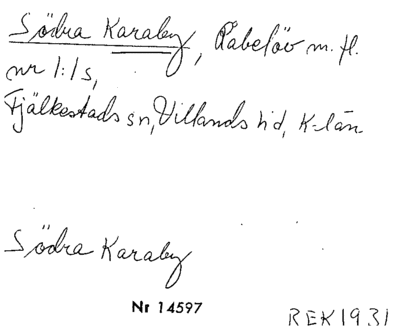 Södra Karaby, Råbelöv m. fl.
nr 1:1 s,
Fjälkestads sn, Villands hd, K-län
Södra Karaby
Nr 14597
REK1931